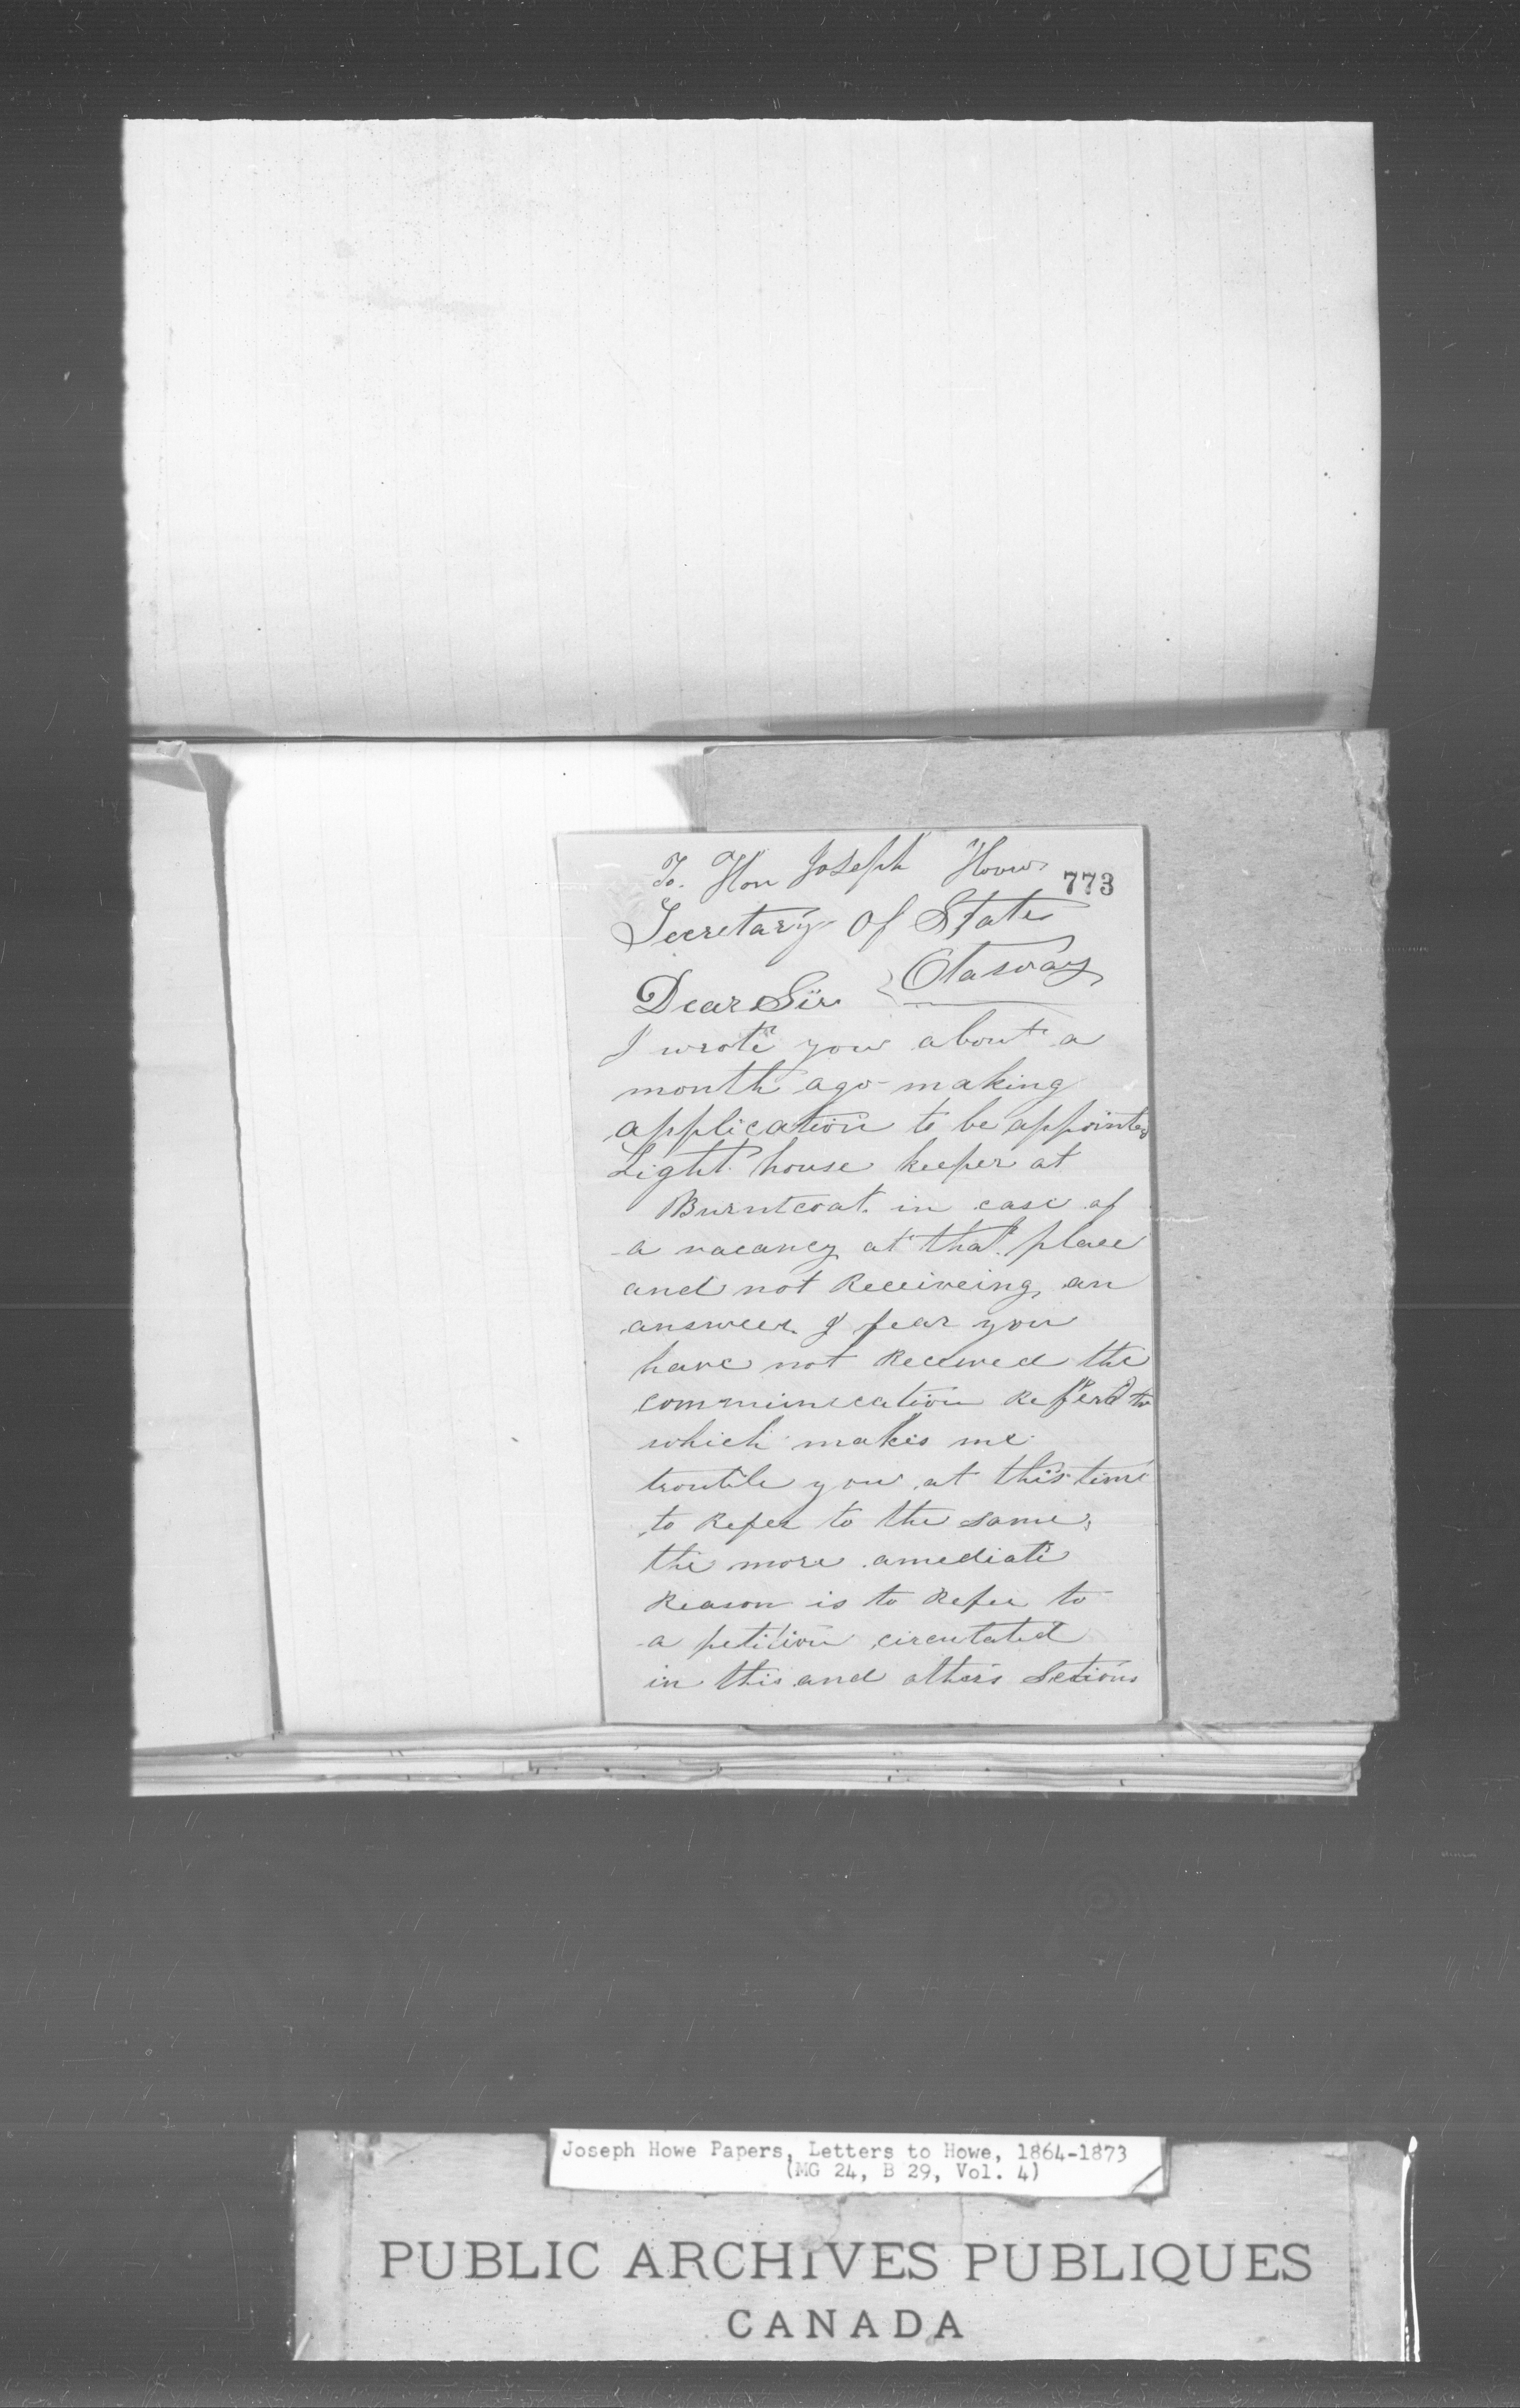 To. Hon Joseph Howe
773
Secretary Of State
Otaway
Dear Sir
I wrote you about a
month ago making
application to be appointed
Light house keeper at
Burntcoat. in case of
a vacancy at that place
and not Receiveing an
answer I fear you
have not Received the
communication Referd to
which makes me
trouble you at this time
to Refer to the same,
the more amediate
Reason is to Refer to
a petition circulated
in this and others Sections
Joseph Howe Papers, Letters to Howe, 1864-1873
(MG 24, B 29, Vol. 4)
PUBLIC ARCHIVES PUBLIQUES
CANADA